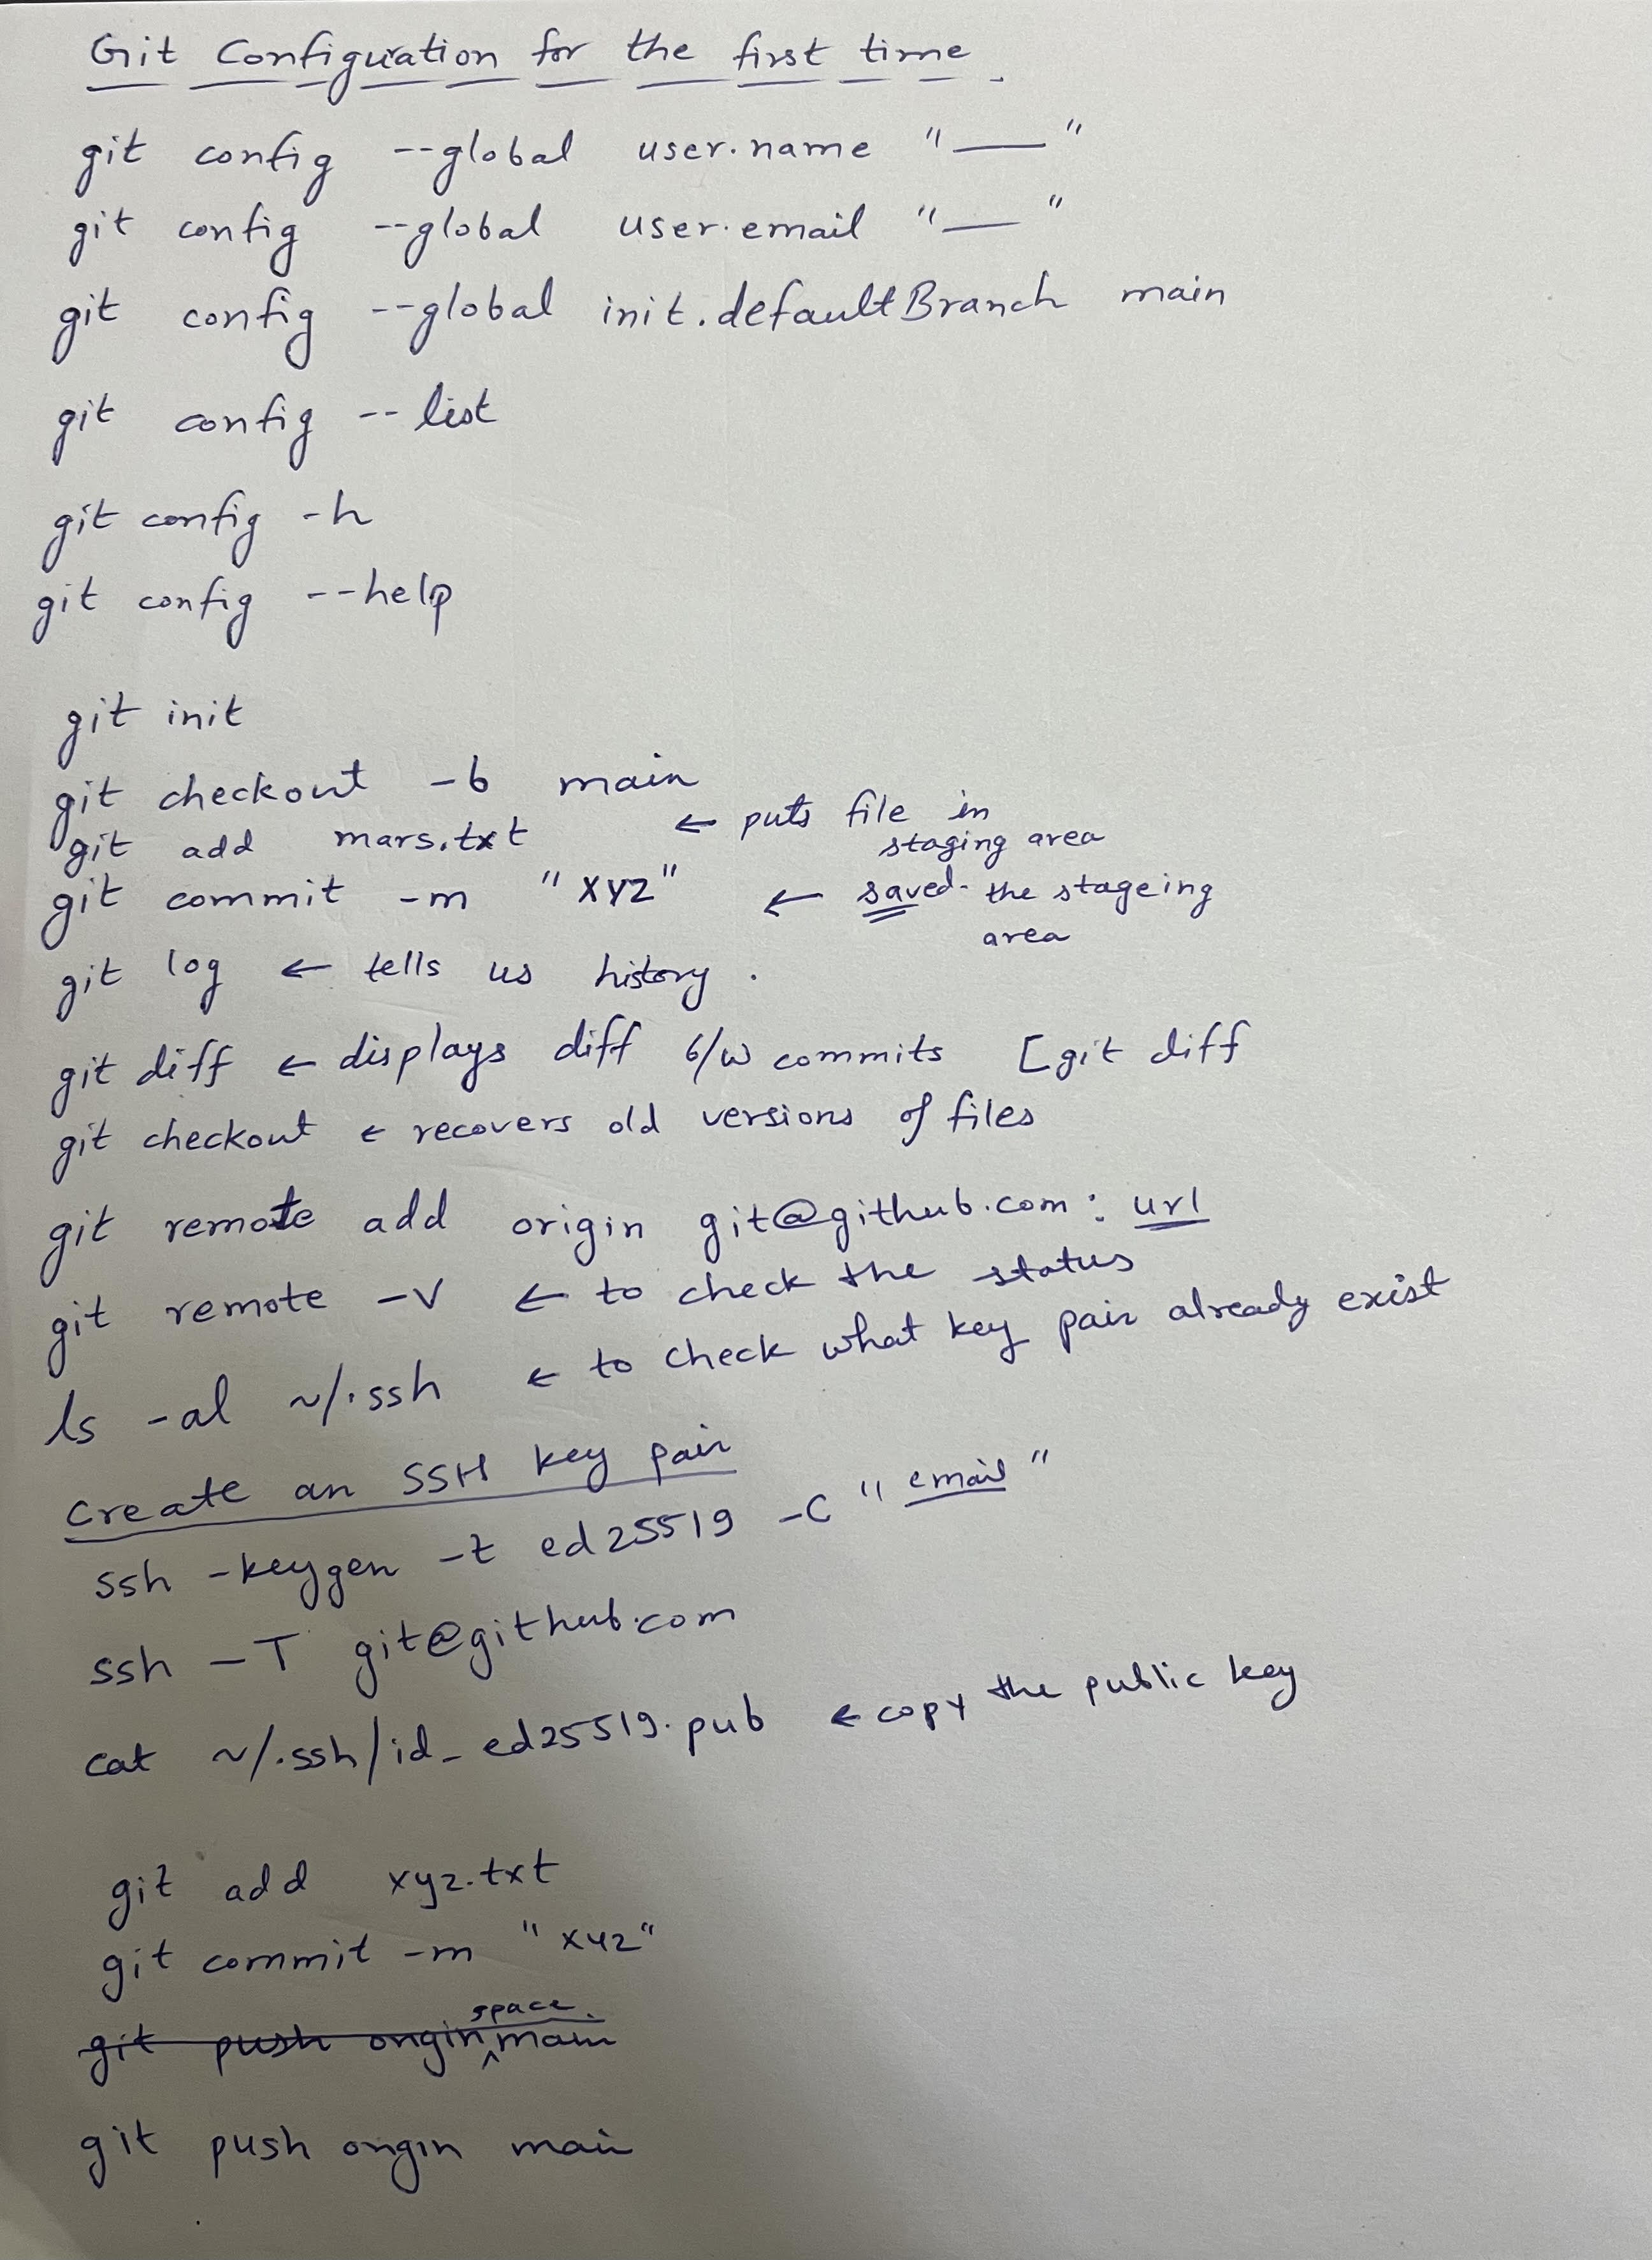 Git Configuration for the first time.
git config --global user.name "___"
git config --global user.email "___"
git config --global init.defaultBranch main
git config --list
git config -h
git config --help
git init
git checkout -b main
git add mars.txt ← puts file in
staging area
git commit -m "xyz" ← saved the stageing
area
git log ← tells us history.
git diff ← displays diff b/w commits [git diff
git checkout ← recovers old versions of files
git remote add origin git@github.com: url
git remote -v ← to check the status
ls -al ~/.ssh ← to check what key pair already exist
Create an SSH key pair
ssh -keygen -t ed25519 -C "email"
ssh -T git@github.com
cat ~/.ssh/id_ed25519.pub ← copy the public key
git add xyz.txt
git commit -m "xyz"
space
git push origin main
git push origin main